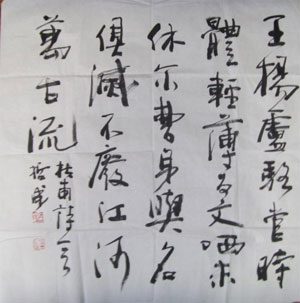 王楊盧駱當時
體輕薄為文哂未
休尔曹身與名
俱滅不廢江河
萬古流
杜甫詩